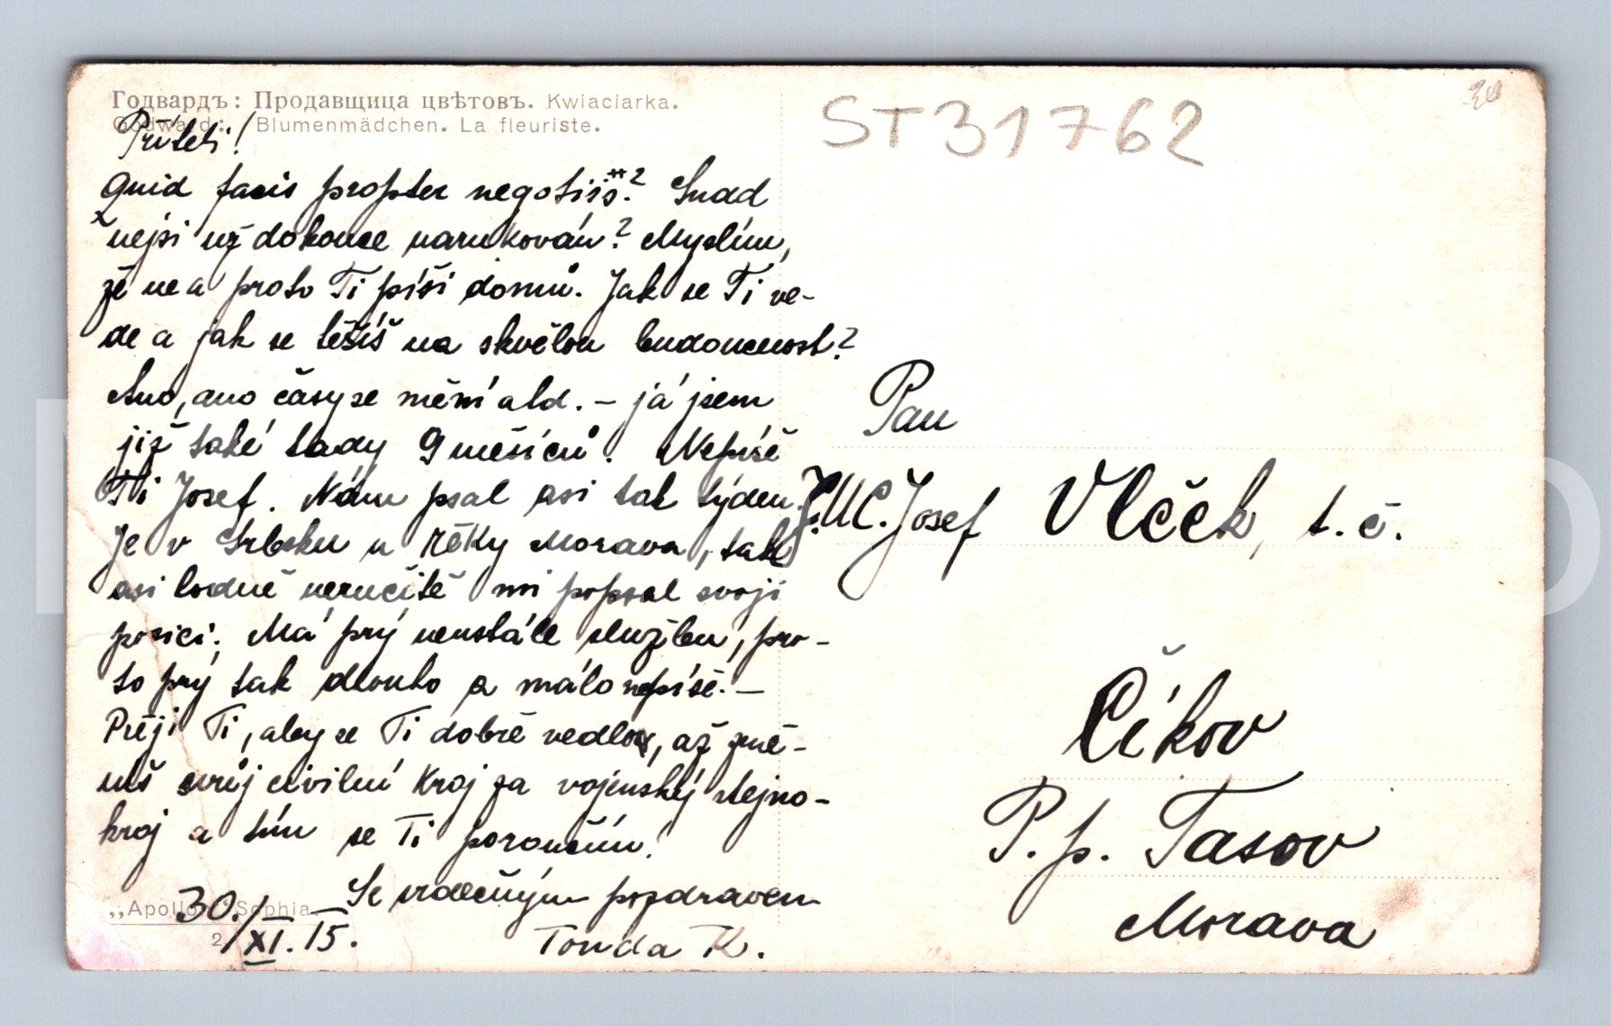 Годвардъ: Продавщица цвѣтовъ. Kwiaciarka.
Godward: Blumenmädchen. La fleuriste.
ST31762
Příteli!
Quid facis propter negotiis? Snad
nejsi už dokonce narukován? Myslím,
že ne a proto Ti píši domů. Jak se Ti ve-
de a jak se těšíš na skvělou budoucnost?
Ano, ano časy se mění atd. – já jsem
již také tady 9 měsíců. Nepíše
Ti Josef. Nám psal asi tak týden.
Je v Srbsku u řéky Morava, tak
asi hodně neručitě mi popsal svoji
posici. Má prý neustále službu, pro-
to prý tak dlouho a málo nepíše. –
Přeji Ti, aby se Ti dobře vedlo, až změ-
níš svůj civilní kroj za vojenský stejno-
kroj a tím se Ti poroučím!
Se srdečným pozdravem
30./XI. 15.
Tonda K.
„Apollon" Sophia
Pan
J.U.C. Josef Vlček, t. č.
Číkov
P. p. Tasov
Morava